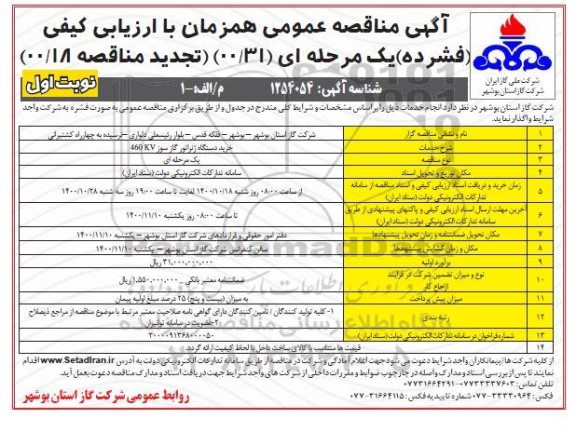 آگهی مناقصه عمومی همزمان با ارزیابی کیفی
(فشرده)یک مرحله ای (۰۰/۳۱) (تجدید مناقصه ۰۰/۱۸)
شرکت ملی گاز ایران
شرکت گاز استان بوشهر
شناسه آگهی: ۱۲۵۴۰۵۴
م/الف:۱-
نوبت اول
شرکت گاز استان بوشهر در نظر دارد انجام خدمات ذیل را بر اساس مشخصات و شرایط کلی مندرج در جدول و از طریق برگزاری مناقصه عمومی به صورت فشرده به شرکت واجد
شرایط واگذار نماید.
۱ نام و نشانی مناقصه گزار شرکت گاز استان بوشهر – بوشهر – فلکه قدس – بلوار رئیسعلی دلواری – نرسیده به چهارراه کشتیرانی
۲ شرح خدمات خرید دستگاه ژنراتور گاز سوز 460 KV
۳ نوع مناقصه یک مرحله ای
۴ مکان توزیع و تحویل اسناد سامانه تدارکات الکترونیکی دولت (ستاد ایران)
۵ زمان خرید و دریافت اسناد ارزیابی کیفی و اسناد مناقصه از سامانه تدارکات الکترونیکی دولت (ستاد ایران) از ساعت ۰۸:۰۰ روز شنبه ۱۴۰۰/۱۰/۱۸ لغایت تا ساعت ۱۹:۰۰ روز سه شنبه ۱۴۰۰/۱۰/۲۸
۶ آخرین مهلت ارسال اسناد ارزیابی کیفی و پاکتهای پیشنهادی از طریق سامانه تدارکات الکترونیکی دولت (ستاد ایران) تا ساعت ۰۸:۰۰ روز یکشنبه ۱۴۰۰/۱۱/۱۰
۷ مکان تحویل ضمانتنامه و زمان تحویل پیشنهادها دفتر امور حقوقی و قراردادهای شرکت گاز استان بوشهر – یکشنبه ۱۴۰۰/۱۱/۱۰
۸ مکان و زمان گشایش پیشنهادها سالن کنفرانس شرکت گاز استان بوشهر – یکشنبه ۱۴۰۰/۱۱/۱۰
۹ برآورد اولیه ۳۱,۰۰۰,۰۰۰,۰۰۰ ریال
۱۰ نوع و میزان تضمین شرکت در فرآیند ارجاع کار ضمانتنامه معتبر بانکی – ۱,۵۵۰,۰۰۰,۰۰۰ ریال
۱۱ میزان پیش پرداخت به میزان (بیست و پنج) ۲۵ درصد مبلغ اولیه پیمان
۱۲ رتبه بندی ۱- کلیه تولید کنندگان / تامین کنندگان دارای گواهی نامه صلاحیت معتبر مرتبط با موضوع مناقصه از مراجع ذیصلاح
۲- عضویت در سامانه توانیران
۱۳ شماره فراخوان در سامانه تدارکات الکترونیکی دولت (ستاد ایران) ۲۰۰۰۰۹۱۳۶۸۰۰۰۰۵۰
۱۴ قیمت ها متناسب با کالای ساخت داخل با لحاظ کیفیت ارائه گردد
از کلیه شرکت ها / پیمانکاران واجد شرایط دعوت می شود جهت اعلام آمادگی و شرکت در مناقصه از طریق سامانه تدارکات الکترونیکی دولت به آدرس www.SetadIran.ir اقدام
نمایند تا پس از بررسی اسناد و مدارک واصله در چارچوب ضوابط و مقررات داخلی از شرکت های واجد شرایط جهت دریافت اسناد و مدارک مناقصه دعوت بعمل آید.
تلفن تماس: ۰۷۷۳۳۳۳۷۶۰۳-۰۷۷۳۱۶۶۴۲۹۱
شماره تایید فکس: ۳۱۶۶۴۱۱۵-۰۷۷ فکس: ۳۳۳۳۰۹۶۴-۰۷۷
روابط عمومی شرکت گاز استان بوشهر